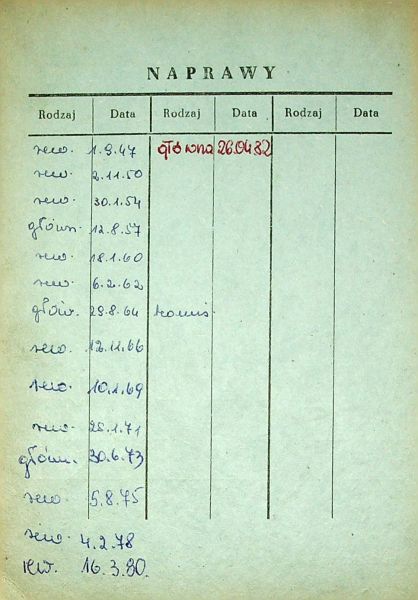 NAPRAWY
Rodzaj Data Rodzaj Data Rodzaj Data
rew. 1.9.47 główna 26.04.82
rew. 2.11.50
rew. 30.1.54
główn. 12.8.57
rew. 18.1.60
rew. 6.2.62
głów. 29.8.64
rew. 12.11.66
rew. 10.1.69
rew. 25.1.71
główn. 30.6.73
rew. 5.8.75
rew. 4.2.78
rew. 16.3.80.